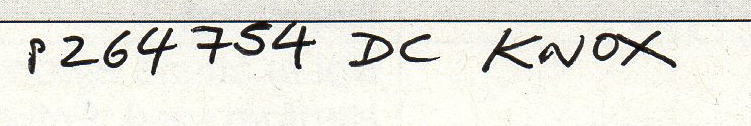 P264754 DC KNOX